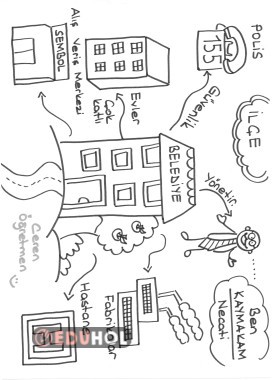 POLİS
155
İLÇE
Güvenlik
Evler
Çok
Katlı
SEMBOL
Alış Veriş Merkezi
BELEDİYE
Yönetir
Ben
KAYMAKAM
Necati
Ceren
Öğretmen
Hastane
EDUHOL